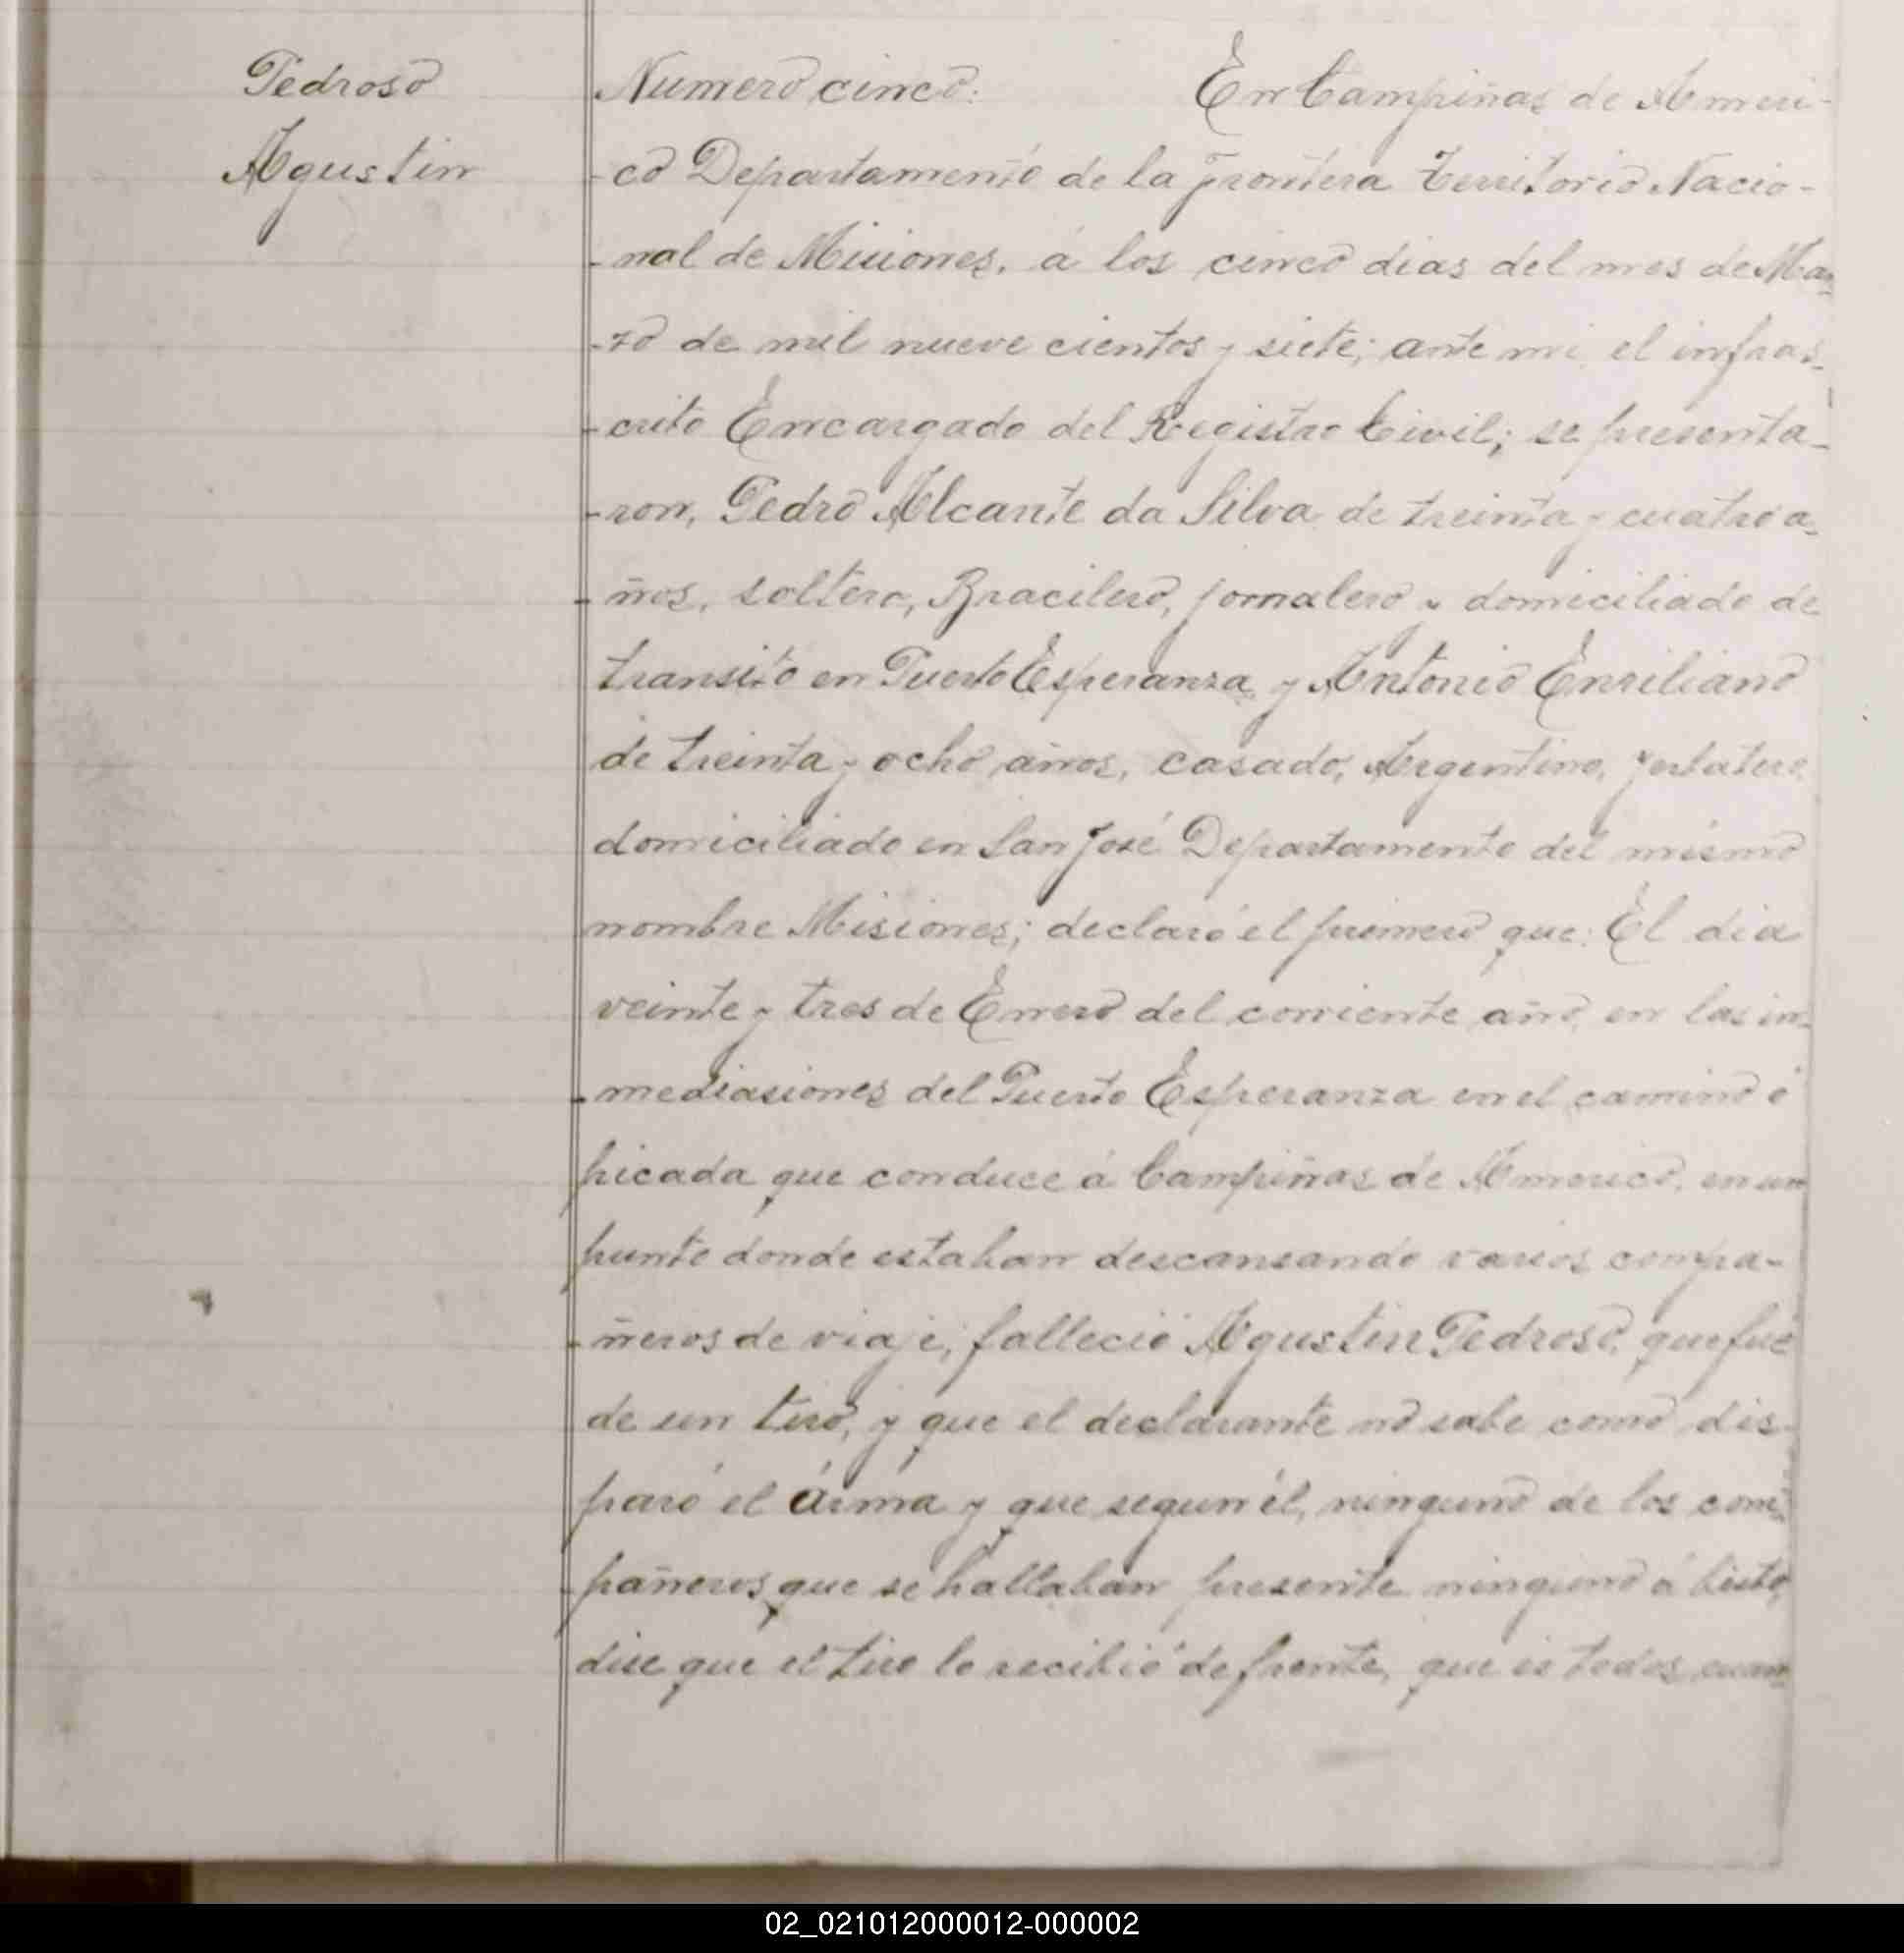 Pedroso
Agustin
Numero cinco: En Campiñas de Ameri-
-co Departamento de la Frontera Territorio Nacio-
-nal de Misiones, á los cinco dias del mes de Mar-
-zo de mil nueve cientos y siete; ante mi el infras-
-crito Encargado del Registro Civil; se presenta-
-ron, Pedro Alcante da Silva de treinta y cuatro a-
-ños, soltero, Bracilero, jornalero y domiciliado de
transito en Puerto Esperanza y Antonio Enriliano
de treinta y ocho años, casado, Argentino,
domiciliado en San José Departamento del mismo
nombre Misiones; declaró el primero que: El dia
veinte y tres de Enero del corriente año en las in-
-mediasiones del Puerto Esperanza en el camino ó
picada que conduce á Campiñas de Americo, en un
punto donde estaban descansando varios compa-
-ñeros de viaje, falleció Agustin Pedroso, que fué
de un tiro, y que el declarante no sabe como dis-
paró el árma y que segun él, ninguno de los com-
-pañeros que se hallaban presente ninguno á bisto,
dise que el tiro lo recibió de frente, que es todos cuan-
02_021012000012-000002